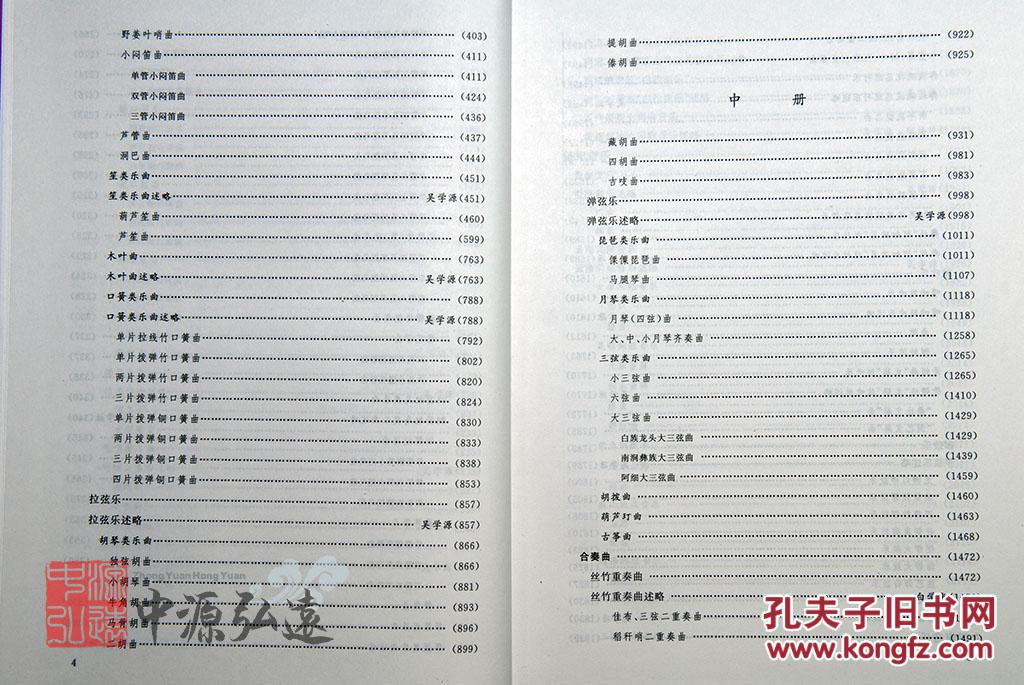 野姜叶哨曲 (403)
小闷笛曲 (411)
单管小闷笛曲 (411)
双管小闷笛曲 (424)
三管小闷笛曲 (436)
芦管曲 (437)
洞巴曲 (444)
笙类乐曲 (451)
笙类乐曲述略 吴学源(451)
葫芦笙曲 (460)
芦笙曲 (599)
木叶曲 (763)
木叶曲述略 吴学源(763)
口簧类乐曲 (788)
口簧类乐曲述略 吴学源(788)
单片拉线竹口簧曲 (792)
单片拨弹竹口簧曲 (802)
两片拨弹竹口簧曲 (820)
三片拨弹竹口簧曲 (824)
单片拨弹铜口簧曲 (830)
两片拨弹铜口簧曲 (833)
三片拨弹铜口簧曲 (838)
四片拨弹铜口簧曲 (853)
拉弦乐 (857)
拉弦乐述略 吴学源(857)
胡琴类乐曲 (866)
独弦胡曲 (866)
小胡琴曲 (881)
牛角胡曲 (893)
马骨胡曲 (896)
二胡曲 (899)
4
提胡曲 (922)
傣胡曲 (925)
中 册
藏胡曲 (931)
四胡曲 (981)
古吱曲 (983)
弹弦乐 (998)
弹弦乐述略 吴学源(998)
琵琶类乐曲 (1011)
傈僳琵琶曲 (1011)
马腿琴曲 (1107)
月琴类乐曲 (1118)
月琴(四弦)曲 (1118)
大、中、小月琴齐奏曲 (1258)
三弦类乐曲 (1265)
小三弦曲 (1265)
六弦曲 (1410)
大三弦曲 (1429)
白族龙头大三弦曲 (1429)
南涧彝族大三弦曲 (1439)
阿细大三弦曲 (1459)
胡拨曲 (1460)
葫芦玎曲 (1463)
古筝曲 (1468)
合奏曲 (1472)
丝竹重奏曲 (1472)
丝竹重奏曲述略
佳布、三弦二重奏曲
稻秆哨二重奏曲 (1491)
中源弘遠
Zhong Yuan Hong Yuan
中源弘遠
孔夫子旧书网
www.kongfz.com